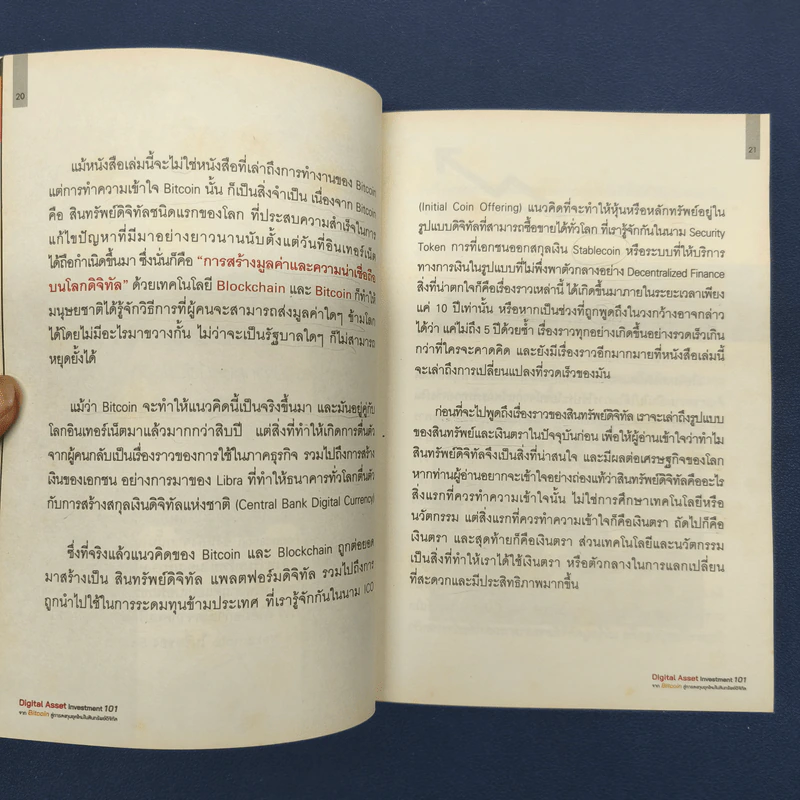 20
แม้หนังสือเล่มนี้จะไม่ใช่หนังสือที่เล่าถึงการทำงานของ Bitcoin
แต่การทำความเข้าใจ Bitcoin นั้น ก็เป็นสิ่งจำเป็น เนื่องจาก Bitcoin
คือ สินทรัพย์ดิจิทัลชนิดแรกของโลก ที่ประสบความสำเร็จในการ
แก้ไขปัญหาที่มีมาอย่างยาวนานนับตั้งแต่วันที่อินเทอร์เน็ต
ได้ถือกำเนิดขึ้นมา ซึ่งนั่นก็คือ “การสร้างมูลค่าและความน่าเชื่อถือ
บนโลกดิจิทัล” ด้วยเทคโนโลยี Blockchain และ Bitcoin ก็ทำให้
มนุษยชาติได้รู้จักวิธีการที่ผู้คนจะสามารถส่งมูลค่าใดๆ ข้ามโลก
ได้โดยไม่มีอะไรมาขวางกั้น ไม่ว่าจะเป็นรัฐบาลใดๆ ก็ไม่สามารถ
หยุดยั้งได้
แม้ว่า Bitcoin จะทำให้แนวคิดนี้เป็นจริงขึ้นมา และมันอยู่คู่กับ
โลกอินเทอร์เน็ตมาแล้วมากกว่าสิบปี แต่สิ่งที่ทำให้เกิดการตื่นตัว
จากผู้คนกลับเป็นเรื่องราวของการใช้ในภาคธุรกิจ รวมไปถึงการสร้าง
เงินของเอกชน อย่างการมาของ Libra ที่ทำให้ธนาคารทั่วโลกตื่นตัว
กับการสร้างสกุลเงินดิจิทัลแห่งชาติ (Central Bank Digital Currency)
ซึ่งที่จริงแล้วแนวคิดของ Bitcoin และ Blockchain ถูกต่อยอด
มาสร้างเป็น สินทรัพย์ดิจิทัล แพลตฟอร์มดิจิทัล รวมไปถึงการ
ถูกนำไปใช้ในการระดมทุนข้ามประเทศ ที่เรารู้จักกันในนาม ICO
Digital Asset Investment 101
จาก Bitcoin สู่การลงทุนยุคใหม่ในสินทรัพย์ดิจิทัล
21
(Initial Coin Offering) แนวคิดที่จะทำให้หุ้นหรือหลักทรัพย์อยู่ใน
รูปแบบดิจิทัลที่สามารถซื้อขายได้ทั่วโลก ที่เรารู้จักกันในนาม Security
Token การที่เอกชนออกสกุลเงิน Stablecoin หรือระบบที่ให้บริการ
ทางการเงินในรูปแบบที่ไม่พึ่งพาตัวกลางอย่าง Decentralized Finance
สิ่งที่น่าตกใจก็คือเรื่องราวเหล่านี้ ได้เกิดขึ้นมาภายในระยะเวลาเพียง
แค่ 10 ปีเท่านั้น หรือหากเป็นช่วงที่ถูกพูดถึงในวงกว้างอาจกล่าว
ได้ว่า แค่ไม่ถึง 5 ปีด้วยซ้ำ เรื่องราวทุกอย่างเกิดขึ้นอย่างรวดเร็วเกิน
กว่าที่ใครจะคาดคิด และยังมีเรื่องราวอีกมากมายที่หนังสือเล่มนี้
จะเล่าถึงการเปลี่ยนแปลงที่รวดเร็วของมัน
ก่อนที่จะไปพูดถึงเรื่องราวของสินทรัพย์ดิจิทัล เราจะเล่าถึงรูปแบบ
ของสินทรัพย์และเงินตราในปัจจุบันก่อน เพื่อให้ผู้อ่านเข้าใจว่าทำไม
สินทรัพย์ดิจิทัลจึงเป็นสิ่งที่น่าสนใจ และมีผลต่อเศรษฐกิจของโลก
หากท่านผู้อ่านอยากจะเข้าใจอย่างถ่องแท้ว่าสินทรัพย์ดิจิทัลคืออะไร
สิ่งแรกที่ควรทำความเข้าใจนั้น ไม่ใช่การศึกษาเทคโนโลยีหรือ
นวัตกรรม แต่สิ่งแรกที่ควรทำความเข้าใจก็คือเงินตรา ถัดไปก็คือ
เงินตรา และสุดท้ายก็คือเงินตรา ส่วนเทคโนโลยีและนวัตกรรม
เป็นสิ่งที่ทำให้เราได้ใช้เงินตรา หรือตัวกลางในการแลกเปลี่ยน
ที่สะดวกและมีประสิทธิภาพมากขึ้น
Digital Asset Investment 101
จาก Bitcoin สู่การลงทุนยุคใหม่ในสินทรัพย์ดิจิทัล